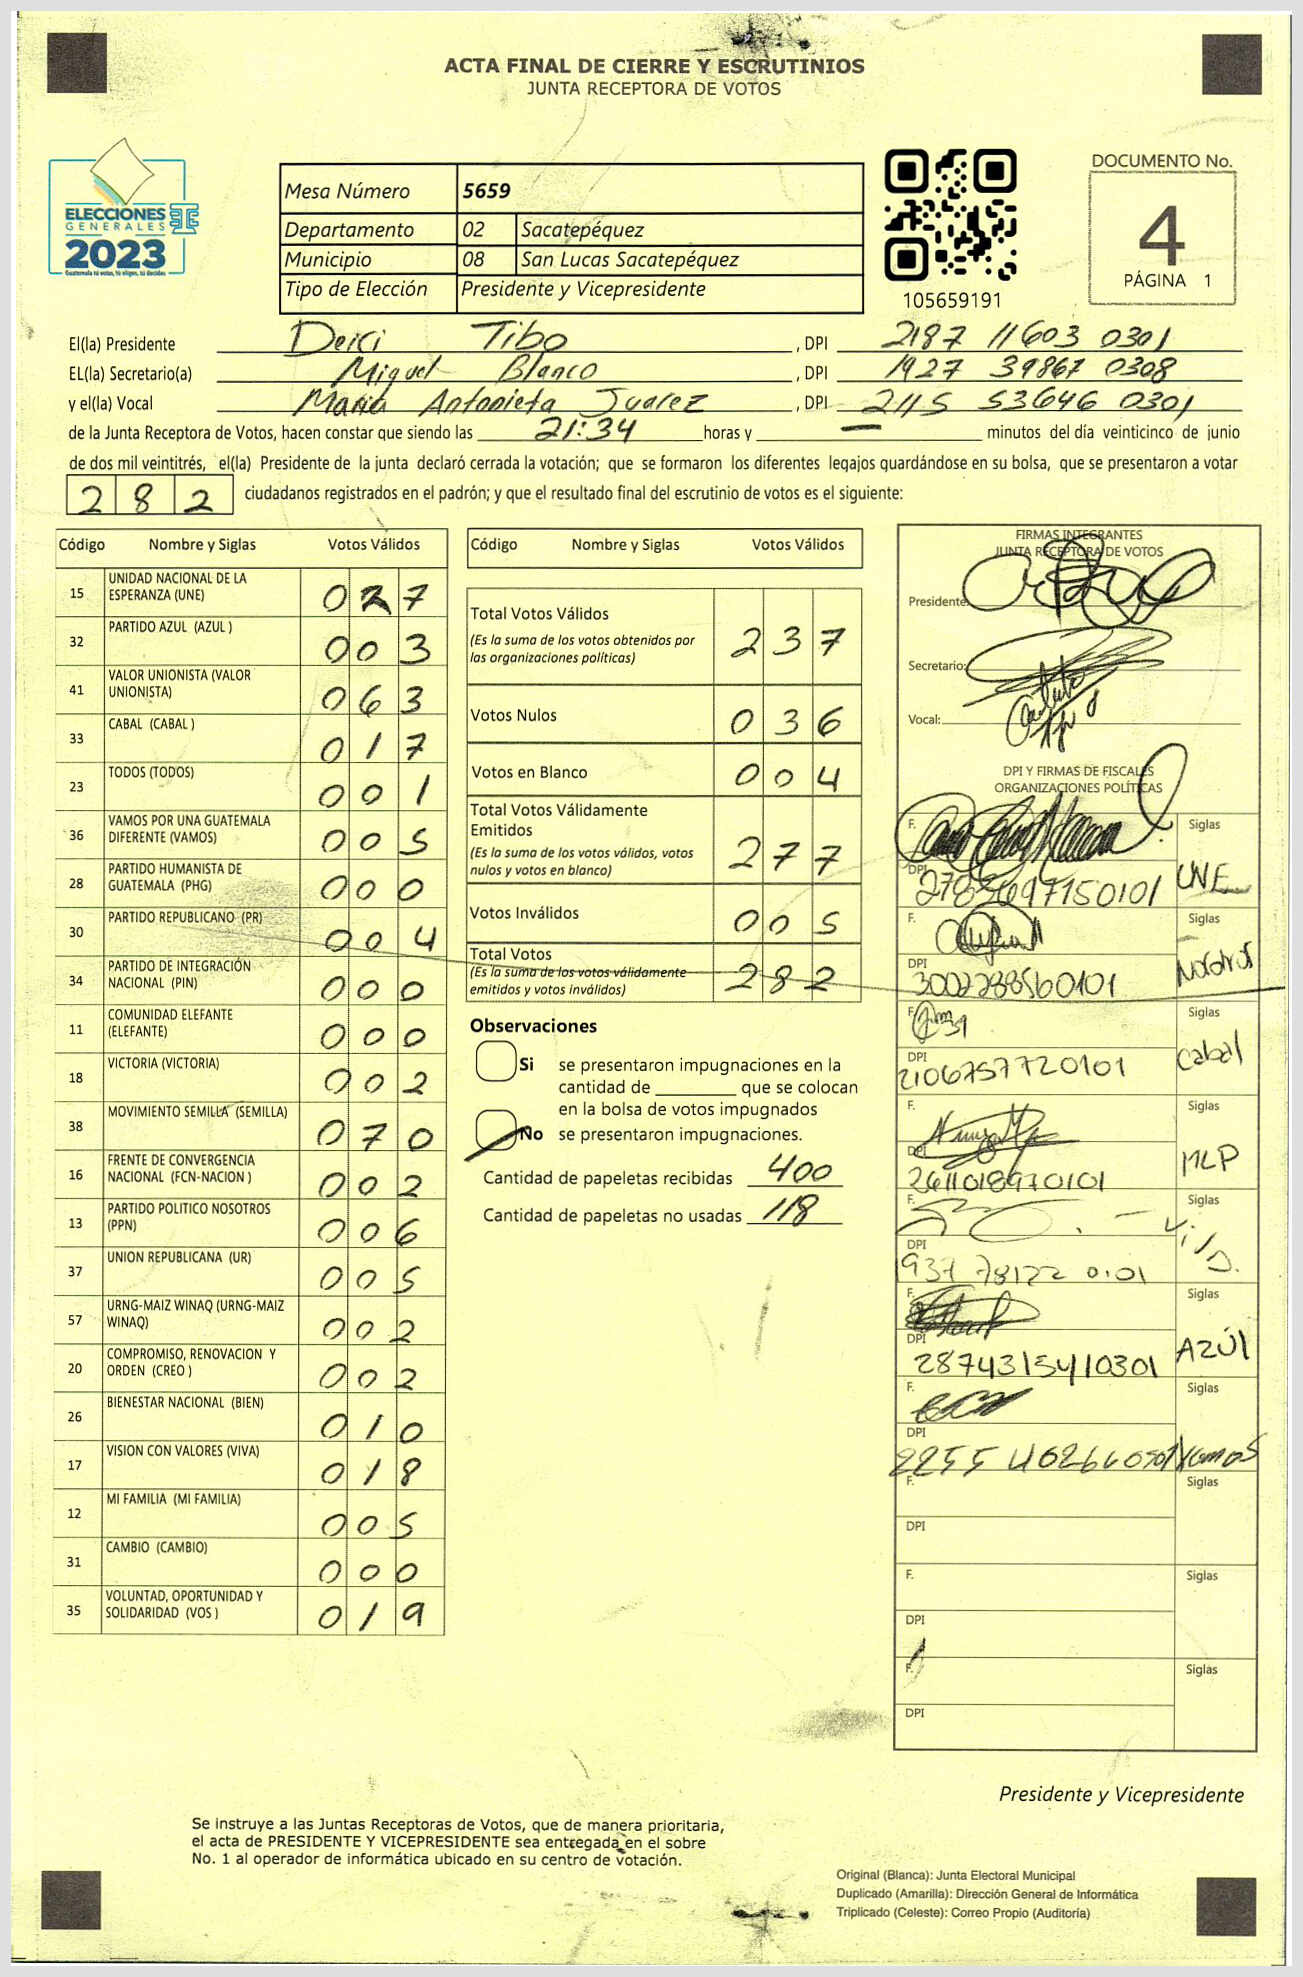 ACTA FINAL DE CIERRE Y ESCRUTINIOS
JUNTA RECEPTORA DE VOTOS
ELECCIONES
GENERALES
2023
Guatemala tú votas, tú eliges, tú decides
Mesa Número 5659
Departamento 02 Sacatepéquez
Municipio 08 San Lucas Sacatepéquez
Tipo de Elección Presidente y Vicepresidente
105659191
DOCUMENTO No.
4
PÁGINA 1
El(la) Presidente Deici Tibo , DPI 2187 11603 0301
EL(la) Secretario(a) Miguel Blanco , DPI 1927 39867 0308
y el(la) Vocal Maria Antonieta Juarez , DPI 2115 53646 0301
de la Junta Receptora de Votos, hacen constar que siendo las 21:34 horas y — minutos del día veinticinco de junio
de dos mil veintitrés, el(la) Presidente de la junta declaró cerrada la votación; que se formaron los diferentes legajos quardándose en su bolsa, que se presentaron a votar
282 ciudadanos registrados en el padrón; y que el resultado final del escrutinio de votos es el siguiente:
Código Nombre y Siglas Votos Válidos
15 UNIDAD NACIONAL DE LA ESPERANZA (UNE) 027
32 PARTIDO AZUL (AZUL ) 003
41 VALOR UNIONISTA (VALOR UNIONISTA) 063
33 CABAL (CABAL ) 017
23 TODOS (TODOS) 001
36 VAMOS POR UNA GUATEMALA DIFERENTE (VAMOS) 005
28 PARTIDO HUMANISTA DE GUATEMALA (PHG) 000
30 PARTIDO REPUBLICANO (PR) 004
34 PARTIDO DE INTEGRACIÓN NACIONAL (PIN) 000
11 COMUNIDAD ELEFANTE (ELEFANTE) 000
18 VICTORIA (VICTORIA) 002
38 MOVIMIENTO SEMILLA (SEMILLA) 070
16 FRENTE DE CONVERGENCIA NACIONAL (FCN-NACION ) 002
13 PARTIDO POLITICO NOSOTROS (PPN) 006
37 UNION REPUBLICANA (UR) 005
57 URNG-MAIZ WINAQ (URNG-MAIZ WINAQ) 002
20 COMPROMISO, RENOVACION Y ORDEN (CREO ) 002
26 BIENESTAR NACIONAL (BIEN) 010
17 VISION CON VALORES (VIVA) 018
12 MI FAMILIA (MI FAMILIA) 005
31 CAMBIO (CAMBIO) 000
35 VOLUNTAD, OPORTUNIDAD Y SOLIDARIDAD (VOS ) 019
Código Nombre y Siglas Votos Válidos
Total Votos Válidos 237
(Es la suma de los votos obtenidos por
las organizaciones políticas)
Votos Nulos 036
Votos en Blanco 004
Total Votos Válidamente
Emitidos 277
(Es la suma de los votos válidos, votos
nulos y votos en blanco)
Votos Inválidos 005
Total Votos 282
(Es la suma de los votos válidamente
emitidos y votos inválidos)
Observaciones
Si se presentaron impugnaciones en la
cantidad de que se colocan
en la bolsa de votos impugnados
No se presentaron impugnaciones.
Cantidad de papeletas recibidas 400
Cantidad de papeletas no usadas 118
FIRMAS INTEGRANTES
JUNTA RECEPTORA DE VOTOS
Presidente:
Secretario:
Vocal:
DPI Y FIRMAS DE FISCALES
ORGANIZACIONES POLÍTICAS
F. Siglas
DPI UNE
F. Siglas
DPI
F. Siglas
DPI 2106757720101 Cabal
F. Siglas
DPI 2611018970101 MLP
F. Siglas
DPI
F. Siglas
DPI 2874315410301 AZÚl
F. Siglas
DPI Vamos
F. Siglas
DPI
F. Siglas
DPI
F. Siglas
DPI
Presidente y Vicepresidente
Se instruye a las Juntas Receptoras de Votos, que de manera prioritaria,
el acta de PRESIDENTE Y VICEPRESIDENTE sea entregada en el sobre
No. 1 al operador de informática ubicado en su centro de votación.
Original (Blanca): Junta Electoral Municipal
Duplicado (Amarilla): Dirección General de Informática
Triplicado (Celeste): Correo Propio (Auditoría)